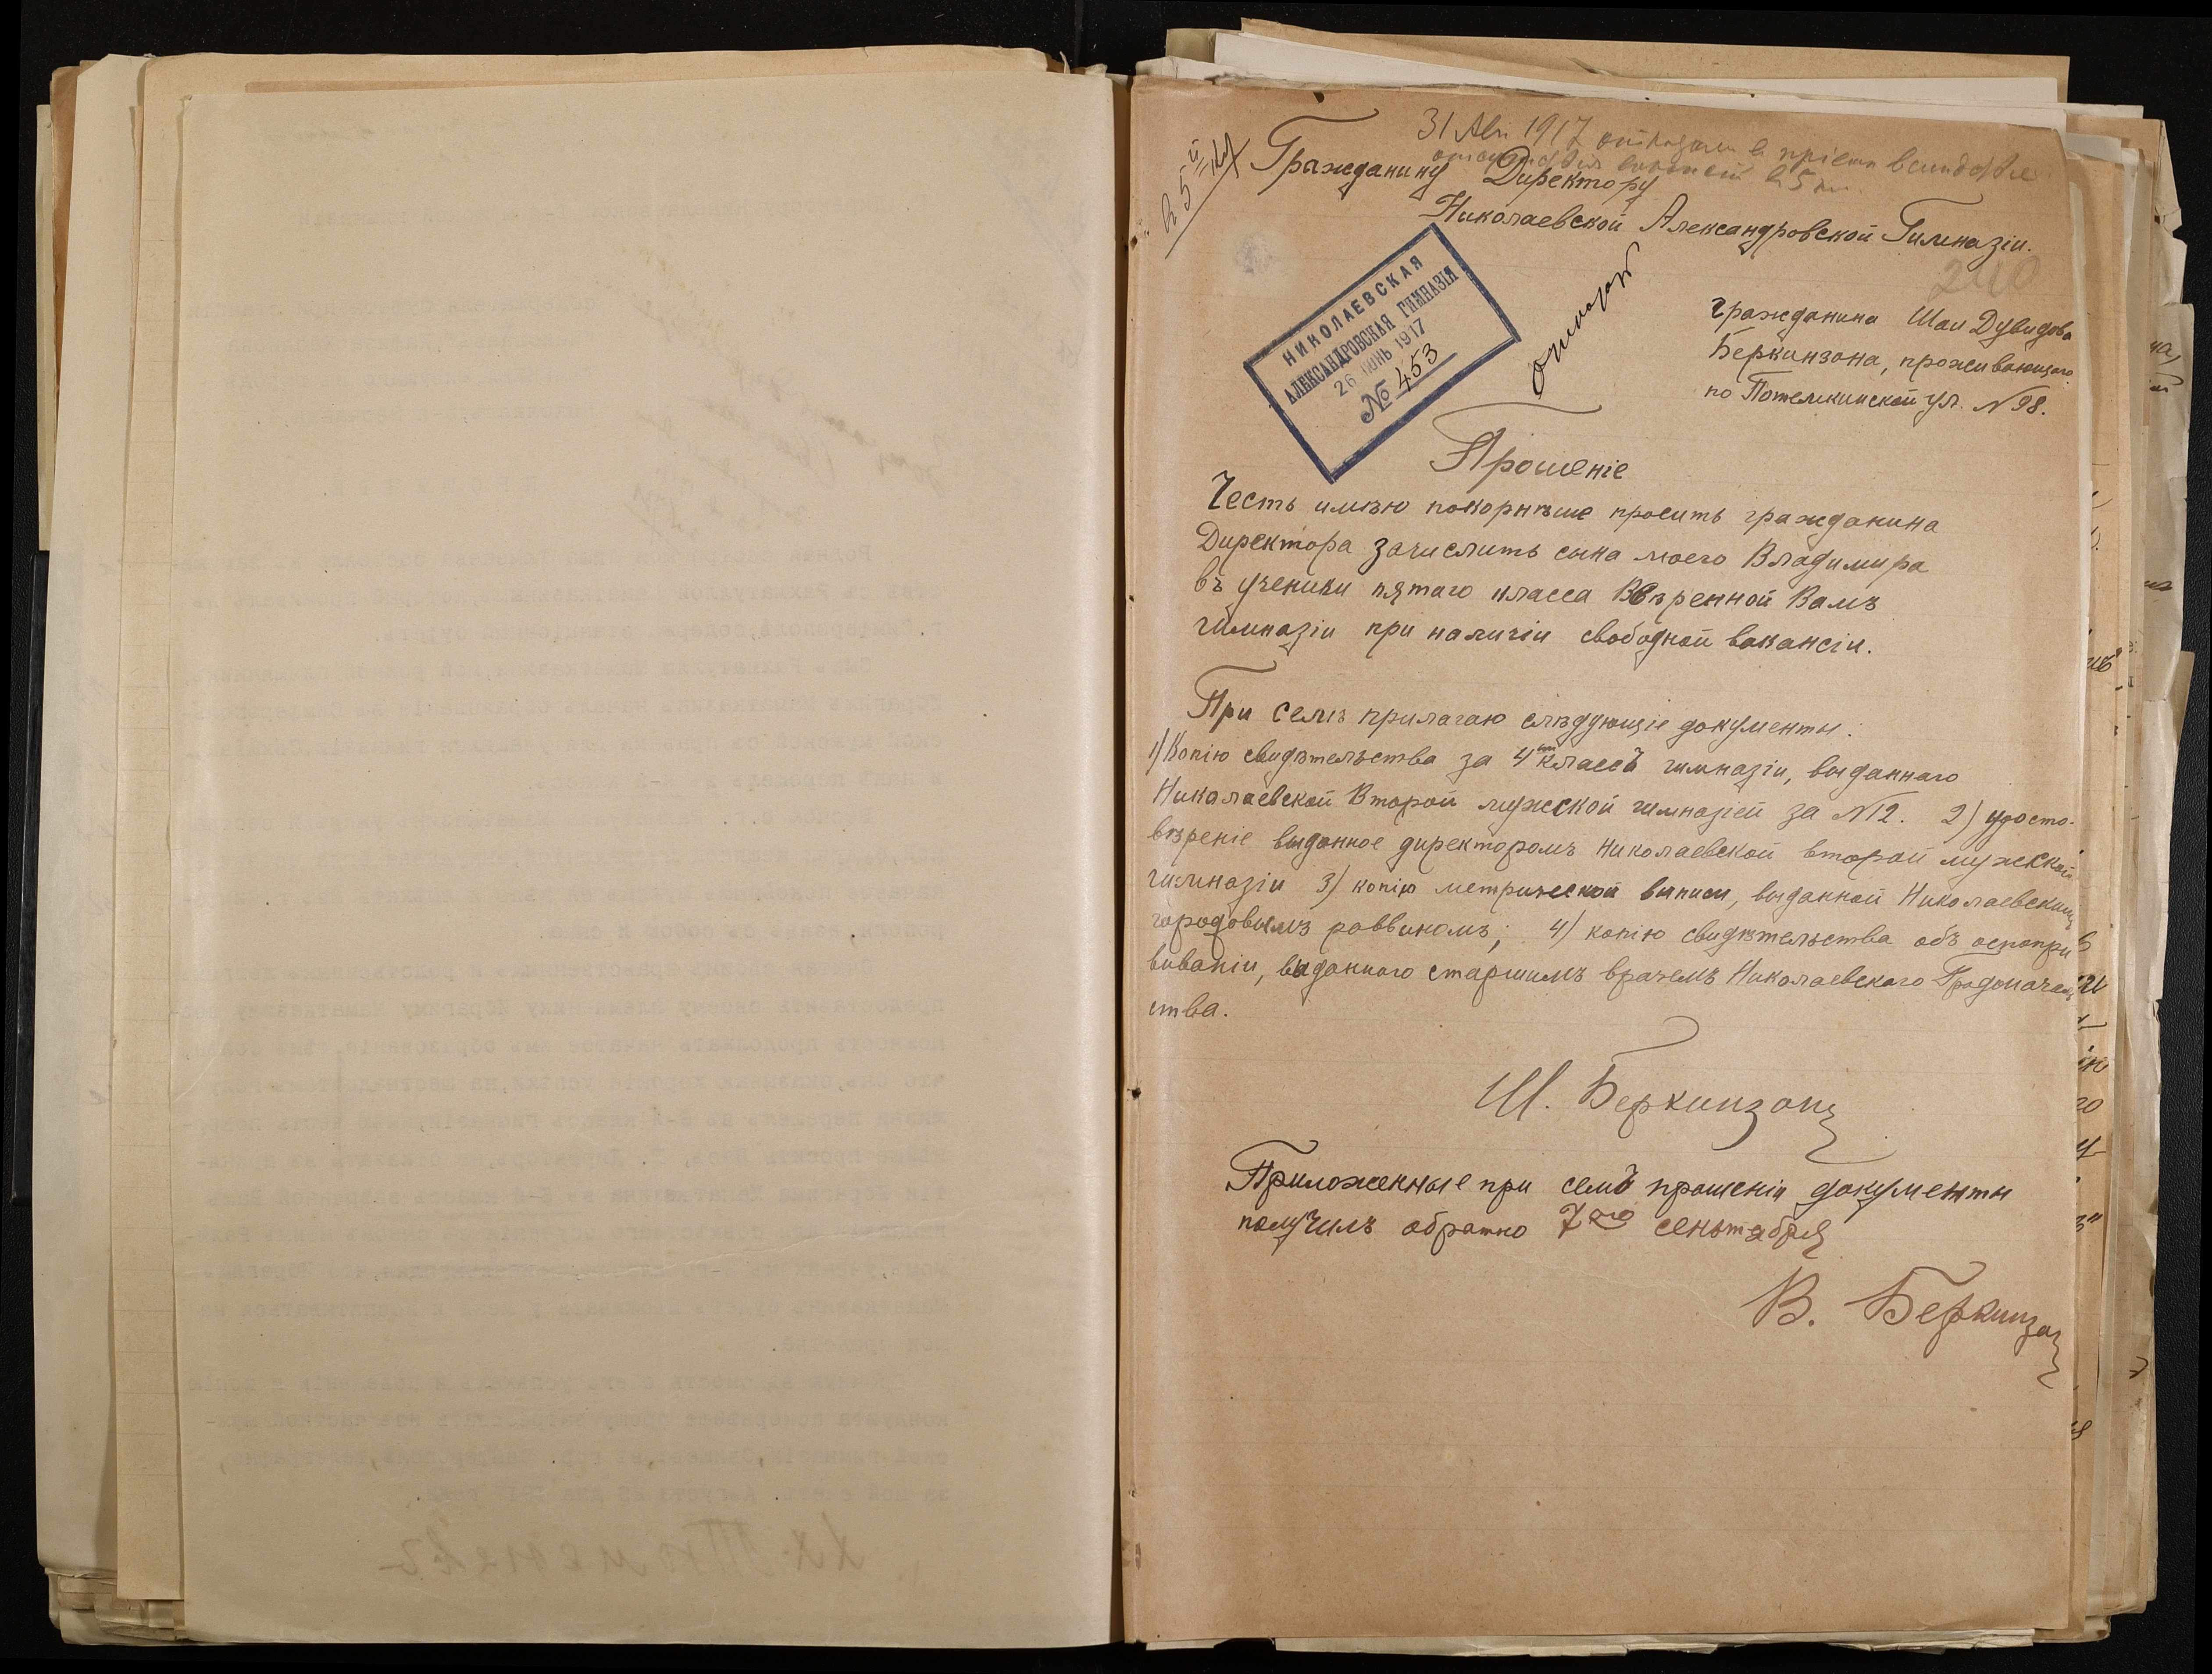 31 Авг 1917 отказано в приемѣ вслѣдствіе
отсутствія вакансій въ 5 кл.
въ 5-й кл
Гражданину Директору
Николаевской Александровской Гимназіи.
240
НИКОЛАЕВСКАЯ
АЛЕКСАНДРОВСКАЯ ГИМНАЗІЯ
26 ІЮНЬ 1917
№ 453
гражданина Шаи Дувидова
Беркинзона, проживающаго
по Потемкинской ул. N 98.
Прошеніе
Честь имѣю покорнѣше просить гражданина
Директора зачислить сына моего Владимира
въ ученики пятаго класса Ввѣренной Вамъ
гимназіи при наличіи свободной вакансіи.
При семъ прилагаю слѣдующіе документы:
1) Копію свидѣтельства за 4 классъ гимназіи, выданнаго
Николаевской Второй мужской гимназіей за N 12. 2) удосто-
вѣреніе выданное директоромъ Николаевской второй мужской
гимназіи 3) копію метрической выписи, выданной Николаевскимъ
городовымъ раввиномъ; 4) копію свидѣтельства объ оспопри
виваніи, выданного старшимъ врачемъ Николаевского Градоначаль
ства.
Ш. Беркинзонъ
Приложенные при семъ прошеніи документы
получилъ обратно 7го сеньтября
В. Беркинзонъ